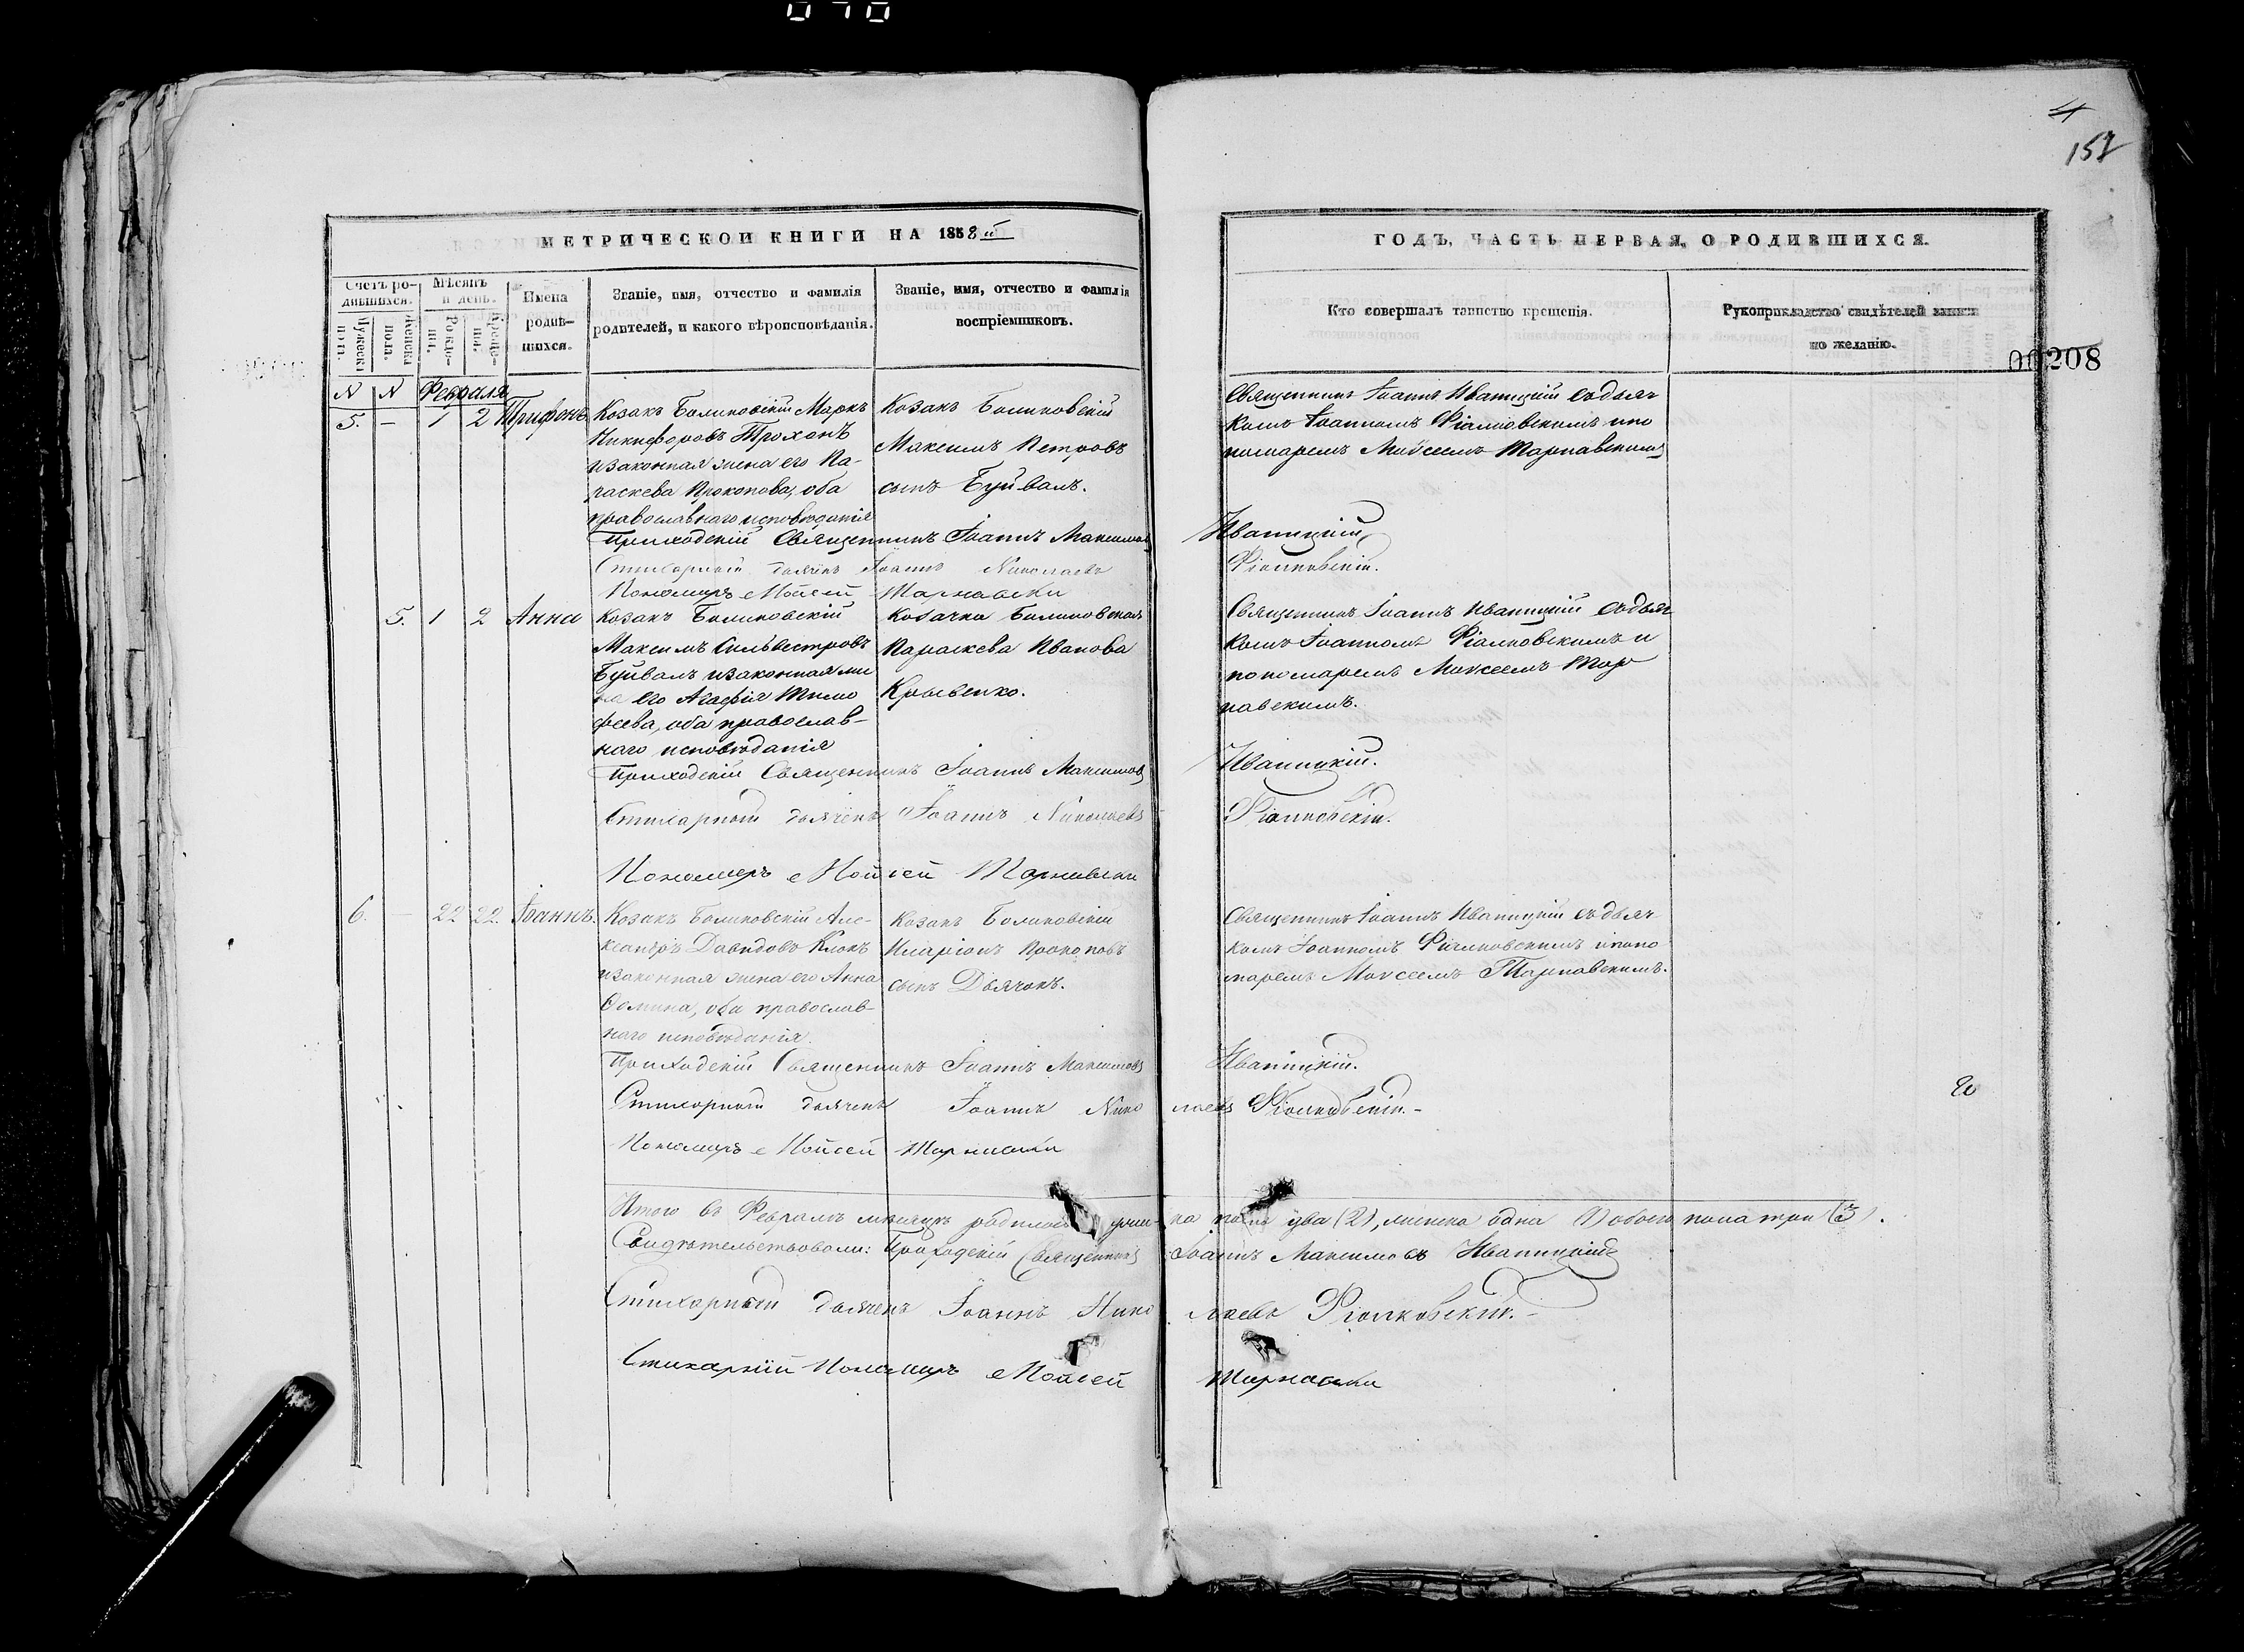 4
157
МЕТРИЧЕСКОЙ КНИГИ НА 1858й
ГОДЪ, ЧАСТЬ ПЕРВАЯ, О РОДИВШИХСЯ.
Счетъ ро-
дившихся.
Мужеска
пола.
Женска
пола.
Мѣсяцъ
и день.
Рожде-
нія.
Креще-
нія.
Имена
родив-
шихся.
Званіе, имя, отчество и фамилія
родителей, и какого вѣроисповѣданія.
Званіе, имя, отчество и фамилія
воспріемниковъ.
Кто совершалъ таинство крещенія.
Рукоприкладство свидѣтелей записи
по желанію.
00208
N N Февраля
5. – 1 2 Трифонъ
Козакъ Болиновскій Маркъ
Никифоровъ Трохонъ
изаконная жена его Па-
раскева Прокопова, оба
православнаго исповѣданія
Козакъ Болиновскій
Максимъ Петровъ
сынъ Буйвалъ.
Священникъ Іоаннъ Иваницкій съдьяч
комъ Іоанномъ Фіалковскимъ ипо
номаремъ Моѵсеемъ Тарнавскимъ
Приходскій Священникъ Іоаннъ Максимовъ Иваницкій
Стихарный дьячекъ Іоаннъ Николаевъ Фіалковскій.
Пономарь Мойсей Тарнавски
5. 1 2 Анна
Козакъ Болиновскій
Максимъ Сильвестровъ
Буйвалъ изаконная же
на его Агафія Тимо
феева, оба православ-
наго исповѣданія
Козачка Болиновская
Параскева Иванова
Кривенко.
Священникъ Іоаннъ Иваницкій съдьяч
комъ Іоанномъ Фіалковскимъ и
пономаремъ Моѵсеемъ Тар
навскимъ.
Приходскій Священникъ Іоаннъ Максимовъ Иваницкій.
Стихарный дьячекъ Іоаннъ Николаевъ Фіалковскій.
Пономарь Мойсей Тарнавски
6. – 22 22. Іоаннъ.
Козакъ Болиновскій Але-
ксандръ Давидовъ Клокъ
изаконная жена его Анна
Фомина, оба православ-
наго исповѣданія.
Козакъ Болиновскій
Иларіонъ Прокоповъ
сынъ Дьячокъ.
Священникъ Іоаннъ Иваницкій съдьяч-
комъ Іоанномъ Фіалковскимъ ипоно
маремъ Моѵсеемъ Тарнавскимъ.
Приходскій Священникъ Іоаннъ Максимовъ Иваницкій.
Стихарный дьячекъ Іоаннъ Николаевъ Фіалковскій.-
Пономарь Мойсей Тарнавски
Итого въ Февралѣ мѣсяцѣ родилось мужеска пола два (2), женска одна (1) обоего пола три (3).
Свидѣтельствовали: Приходскій Священникъ Іоаннъ Максимовъ Иваницкій
Стихарный дьячекъ Іоаннъ Николаевъ Фіалковскій.-
Стихарный Пономарь Мойсей Тарнавски